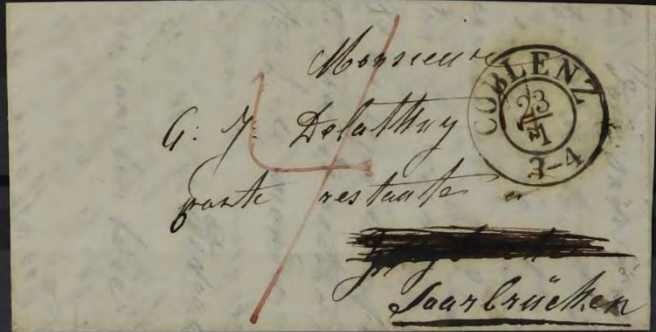 Monsieur
COBLENZ
23
1
3-4
G: J: Delathuy
poste restante a
Saarbrücken
4